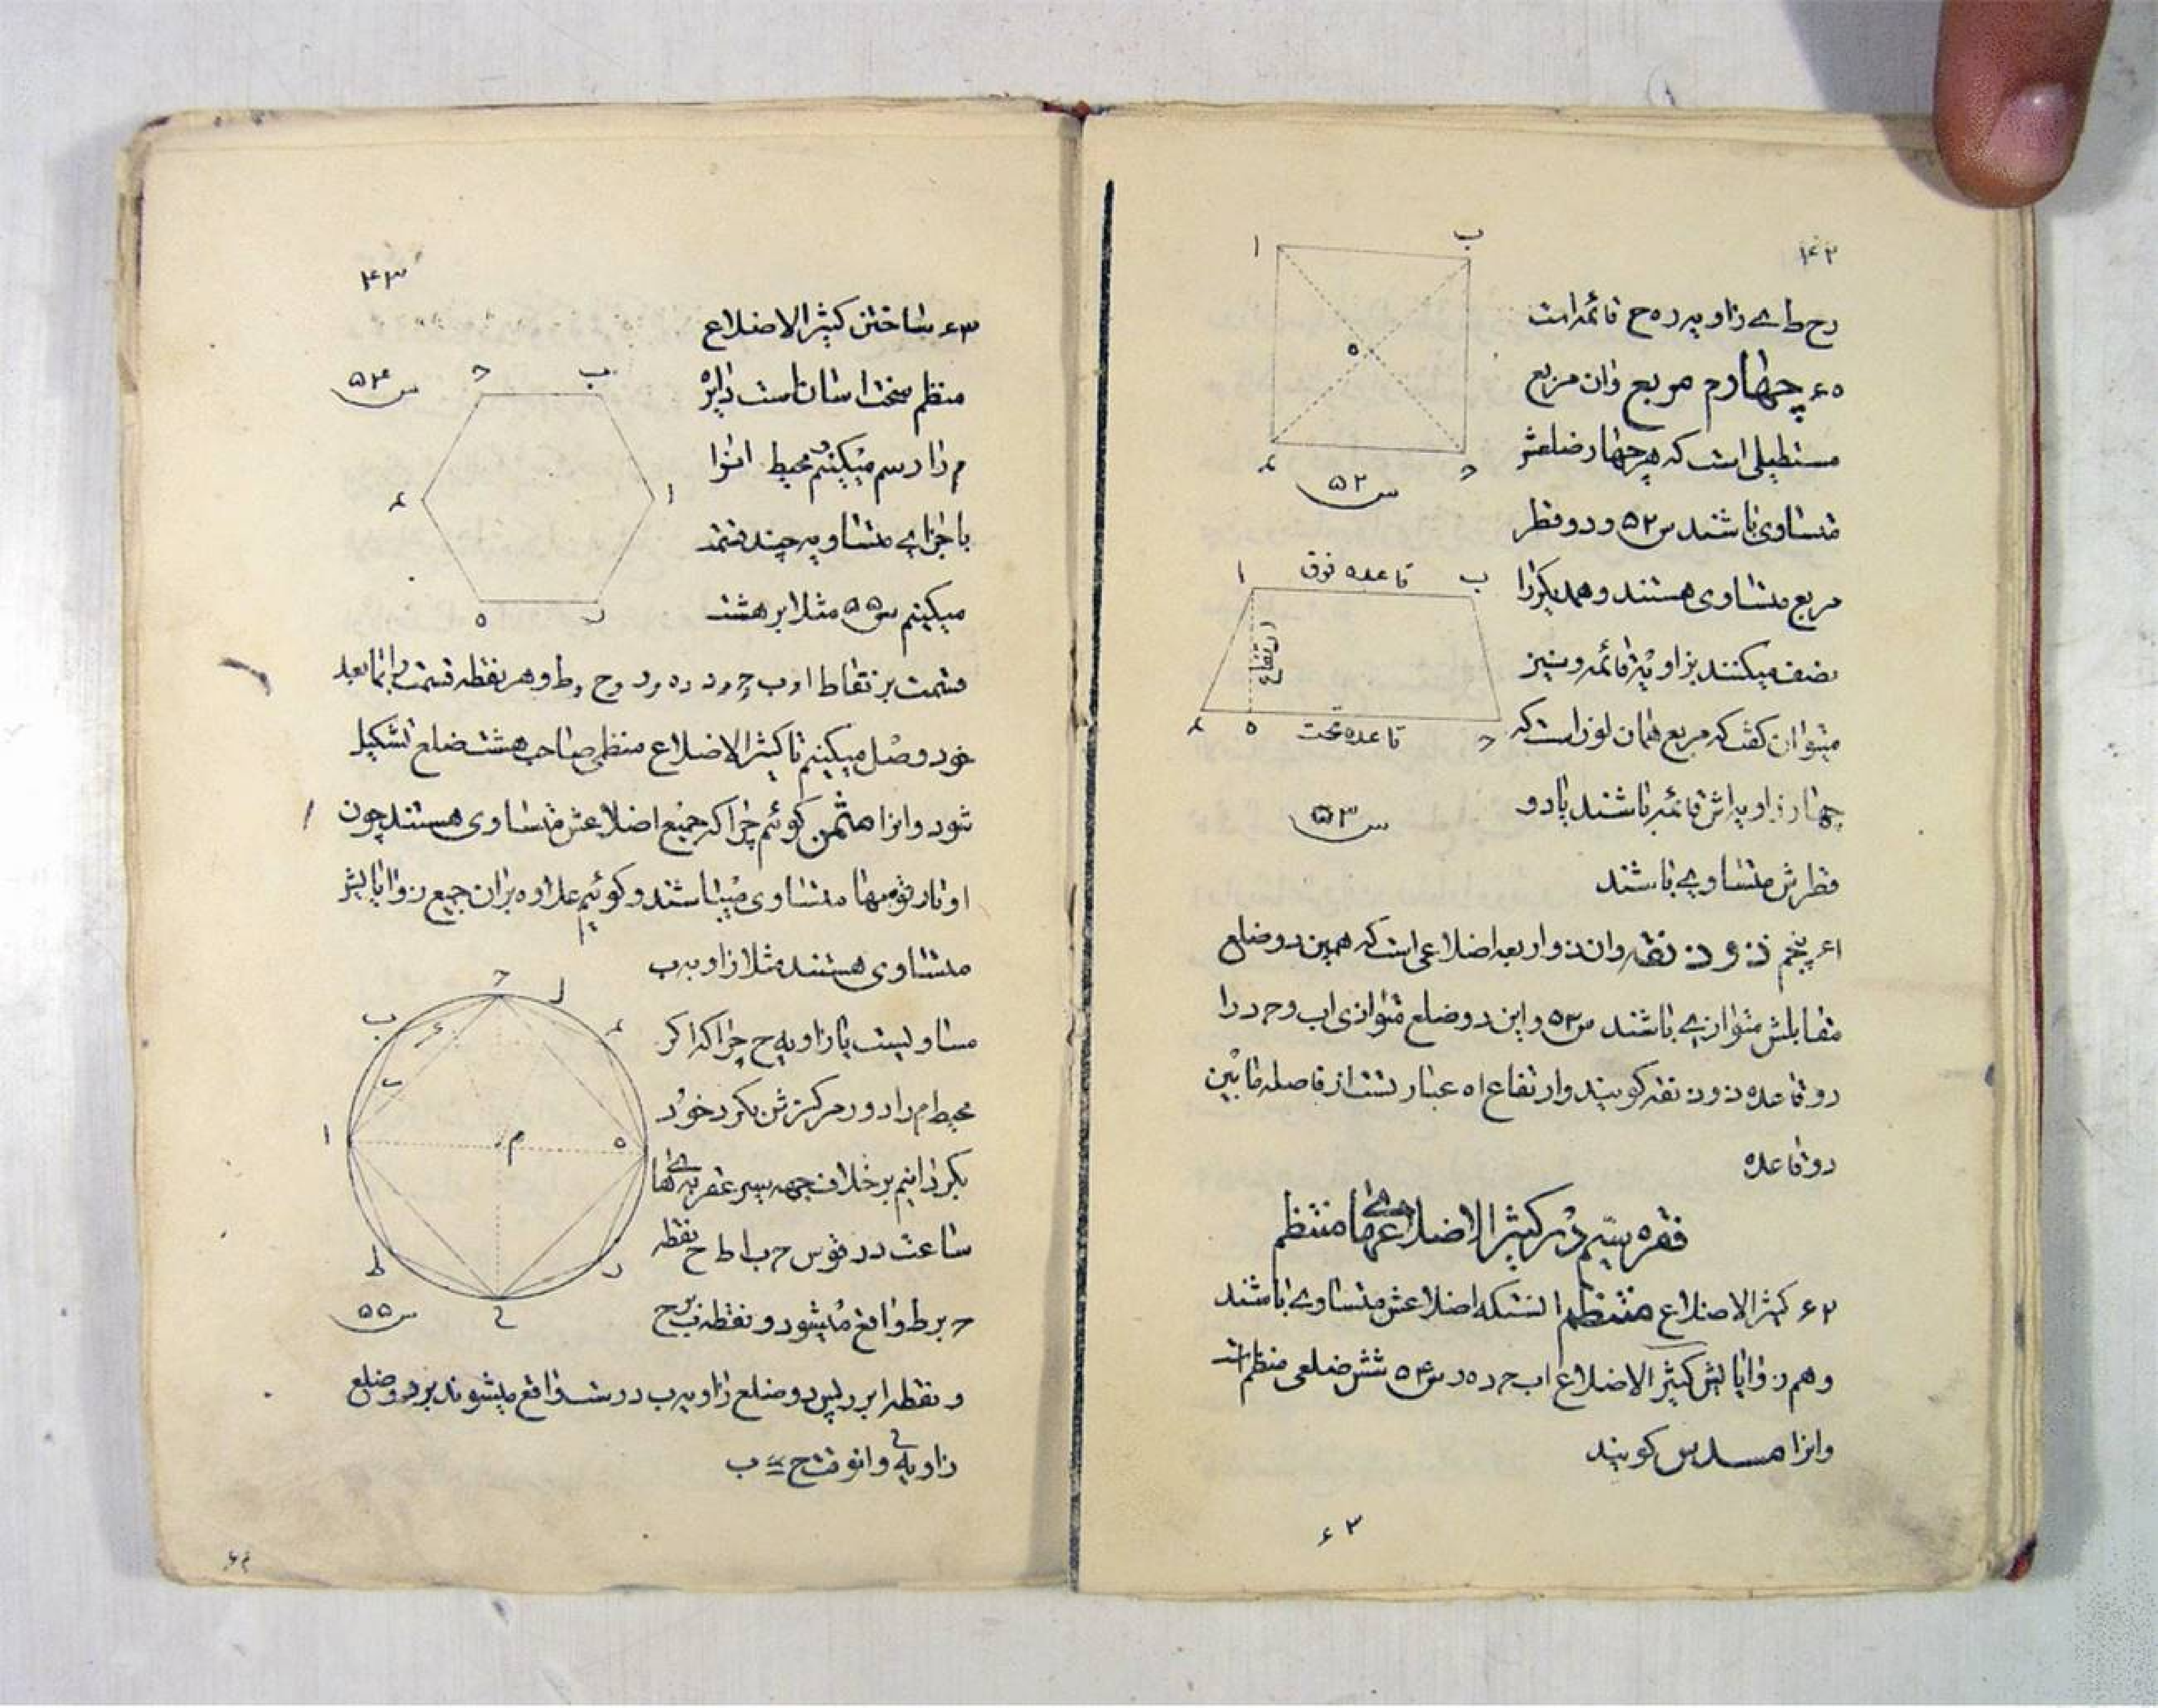 ۴۲
ا ب
رح ط ے زاویه ر ه ح قائمه است
۶۰ چهارم مربع وان مربع
مستطیلی است که هر چهار ضلعش
متساوی باشند س ۵۲ و دو قطر
مربع متساوی هستند و همدیکر را
نصف میکنند بزاویهٔ قائمه و نیز
میتوان کفت که مربع همان لوزی است که
چهار زاویه اش قائمه باشند یا دو
قطرش متساوی باشند
ه
س ۵۲
ا قاعده فوق ب
ارتفاع
قاعده تحت
س ۵۳
۶۱ پنجم ذوذنقه وان ذواربعه اضلاعی است که همین دو ضلع
مقابلش متوازی باشند س ۵۳ و این دو ضلع متوازی اب و ح د را
دو قاعده ذوذنقه کویند و ارتفاع ا ه عبارتست از فاصله مابین
دو قاعده
فقره سیم در کثیر الاضلاعهای منتظم
۶۲ کثیر الاضلاع منتظم انستکه اضلاعش متساوی باشند
و هم زوایایش کثیر الاضلاع اب ح د ه ر س ۵۴ شش ضلعی منظم است
و انرا مسدس کویند
۶۳
۴۳
۶۳ ساختن کثیر الاضلاع
منظم سخت اسان است دایرهٔ
م را رسم میکنیم محیط انرا
باجزاے متساویه چند قسمت
میکنیم س ۵۵ مثلا بر هشت
س ۵۴
قسمت بر نقاط ا و ب و ح و د و ه و ر و ح و ط و هر نقطه قسمت را بمابعد
خود وصل میکنیم تا کثیر الاضلاع منظمی صاحب هشت ضلع تشکیل
شود و انرا مثمن کوئیم چرا که جمیع اضلاعش متساوی هستند چون
اوتار قوسها متساوی میباشند و کوئیم علاوه بران جمیع زوایایش
متساوی هستند مثلا زاویه ب
مساویست با زاویه ح چرا که اکر
محیط م را دور مرکزش بکرد خود
بکردانیم بر خلاف جهه سیر عقربه هاے
ساعت در قوس ح ب ا ط ح نقطه
ح بر ط واقع میشود و نقطه ب بر ح
م
س ۵۵
و نقطه ا بر ر پس دو ضلع زاویه ب درست واقع میشوند بر دو ضلع
زاویه ح و انوقت ح = ب